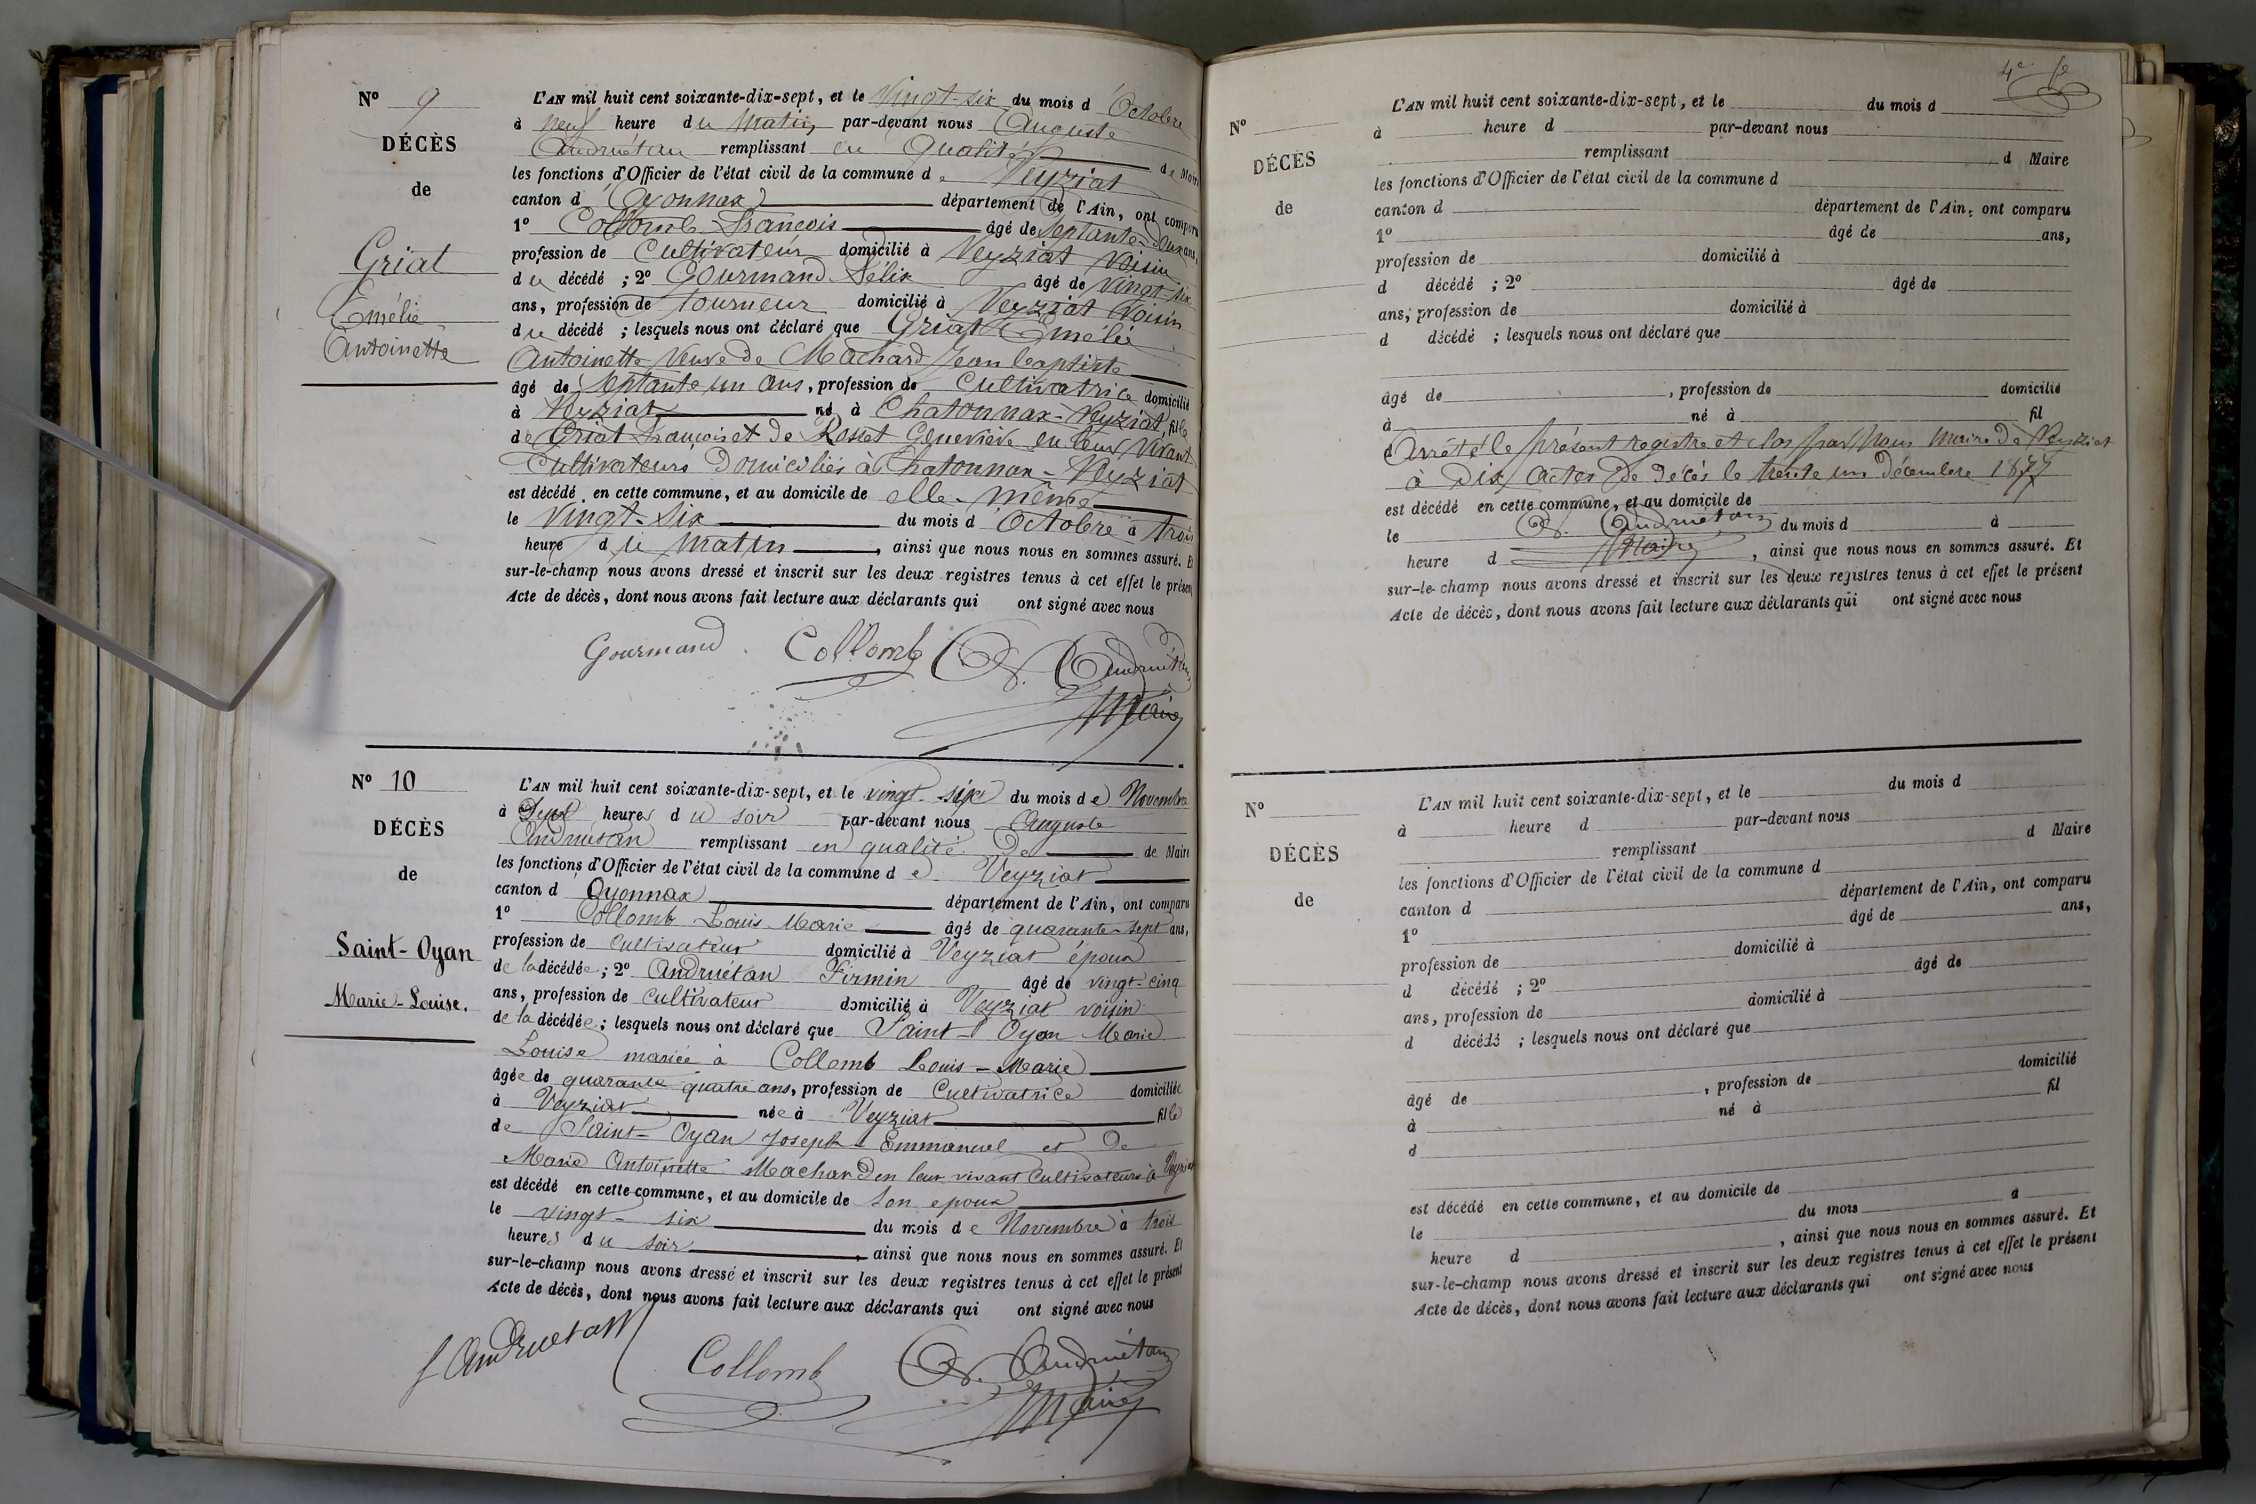 N° 9
DÉCÈS
de
Griat
Emélie
Antoinette
L'AN mil huit cent soixante-dix-sept, et le Vingt-six du mois d'Octobre
à neuf heure du Matin par-devant nous Auguste
Andruétan remplissant en Qualité de Maire
les fonctions d'Officier de l'état civil de la commune de Veyziat
canton d'Oyonnax département de l'Ain, ont comparu
1° Collomb François âgé de Septante-deux ans,
profession de Cultivateur domicilié à Veyziat Voisin
du décédé ; 2° Gourmand Félix âgé de Vingt-six
ans, profession de tourneur domicilié à Veyziat Voisin
du décédé ; lesquels nous ont déclaré que Griat Emélie
Antoinette Veuve de Machard Jean baptiste
âgé de Septante un ans, profession de Cultivatrice domicilié
à Veyziat né à Chatonnax-Veyziat, fille
de Griat François et de Rosset Geneviève en leur Vivant
Cultivateurs Domiciliés à Chatonnax-Veyziat
est décédé en cette commune, et au domicile de elle-même
le Vingt-six du mois d'Octobre à trois
heure du matin, ainsi que nous nous en sommes assuré. Et
sur-le-champ nous avons dressé et inscrit sur les deux registres tenus à cet effet le présent
Acte de décès, dont nous avons fait lecture aux déclarants qui ont signé avec nous
Gourmand Collomb A. Andruétan
Maire
N° 10
DÉCÈS
de
Saint-Oyan
Marie-Louise.
L'AN mil huit cent soixante-dix-sept, et le vingt-six du mois de Novembre
à heures du soir par-devant nous Auguste
Andruétan remplissant en qualité De de Maire
les fonctions d'Officier de l'état civil de la commune de Veyziat
canton d'Oyonnax département de l'Ain, ont comparu
1° Collomb Louis Marie âgé de quarante-sept ans,
profession de Cultivateur domicilié à Veyziat époux
de la décédée ; 2° Andruétan Firmin âgé de vingt-cinq
ans, profession de Cultivateur domicilié à Veyziat voisin
de la décédée ; lesquels nous ont déclaré que Saint-Oyan Marie
Louise mariée à Collomb Louis-Marie
âgée de quarante quatre ans, profession de Cultivatrice domiciliée
à Veyziat née à Veyziat fille
de Saint-Oyan Joseph Emmanuel et De
Marie Antoinette Machard en leur vivant Cultivateurs à Veyziat
est décédé en cette commune, et au domicile de Son epoux
le vingt-six du mois de Novembre à trois
heures du soir, ainsi que nous nous en sommes assuré. Et
sur-le-champ nous avons dressé et inscrit sur les deux registres tenus à cet effet le présent
Acte de décès, dont nous avons fait lecture aux déclarants qui ont signé avec nous
f Andruetan Collomb A. Andruétan
Maire
4e fe
N°
DÉCÈS
de
L'AN mil huit cent soixante-dix-sept, et le du mois d
à heure d par-devant nous
remplissant d Maire
les fonctions d'Officier de l'état civil de la commune d
canton d département de l'Ain, ont comparu
1° âgé de ans,
profession de domicilié à
d décédé ; 2° âgé de
ans, profession de domicilié à
d décédé ; lesquels nous ont déclaré que
âgé de , profession de domicilié
à né à fil
d Arrêté le présent registre et clos par Nous Maire De Veyziat
à Dix Actes de décès le trente un Décembre 1877
est décédé en cette commune, et au domicile de
A. Andruétan
le du mois d à
Maire
heure d , ainsi que nous nous en sommes assuré. Et
sur-le-champ nous avons dressé et inscrit sur les deux registres tenus à cet effet le présent
Acte de décès, dont nous avons fait lecture aux déclarants qui ont signé avec nous
N°
DÉCÈS
de
L'AN mil huit cent soixante-dix-sept, et le du mois d
à heure d par-devant nous
remplissant d Maire
les fonctions d'Officier de l'état civil de la commune d
canton d département de l'Ain, ont comparu
1° âgé de ans,
profession de domicilié à
d décédé ; 2° âgé de
ans, profession de domicilié à
d décédé ; lesquels nous ont déclaré que
âgé de , profession de domicilié
à né à fil
d
est décédé en cette commune, et au domicile de
le du mois à
heure d , ainsi que nous nous en sommes assuré. Et
sur-le-champ nous avons dressé et inscrit sur les deux registres tenus à cet effet le présent
Acte de décès, dont nous avons fait lecture aux déclarants qui ont signé avec nous